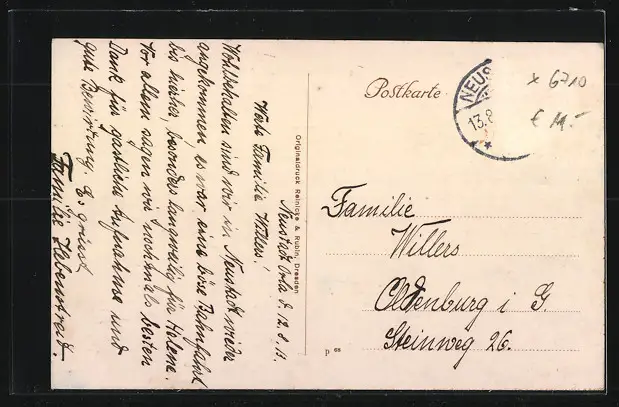 Neustadt Orla d. 12.8.13.
Werte Familie Willers!
Wohlbehalten sind wir in Neustadt wieder
angekommen, es war eine böse Bahnfahrt
bis hierher, besonders langweilig für Helene.
Vor allem sagen wir nochmals besten
Dank für gastliche Aufnahme und
gute Bewirtung. Es grüsst
Familie Hebenstreit.
Originaldruck Reinicke & Rubin, Dresden
P 68
Postkarte
NEUS
13.8
x 6710
€ 14,-
Familie
Willers
Oldenburg i G.
Steinweg 26.